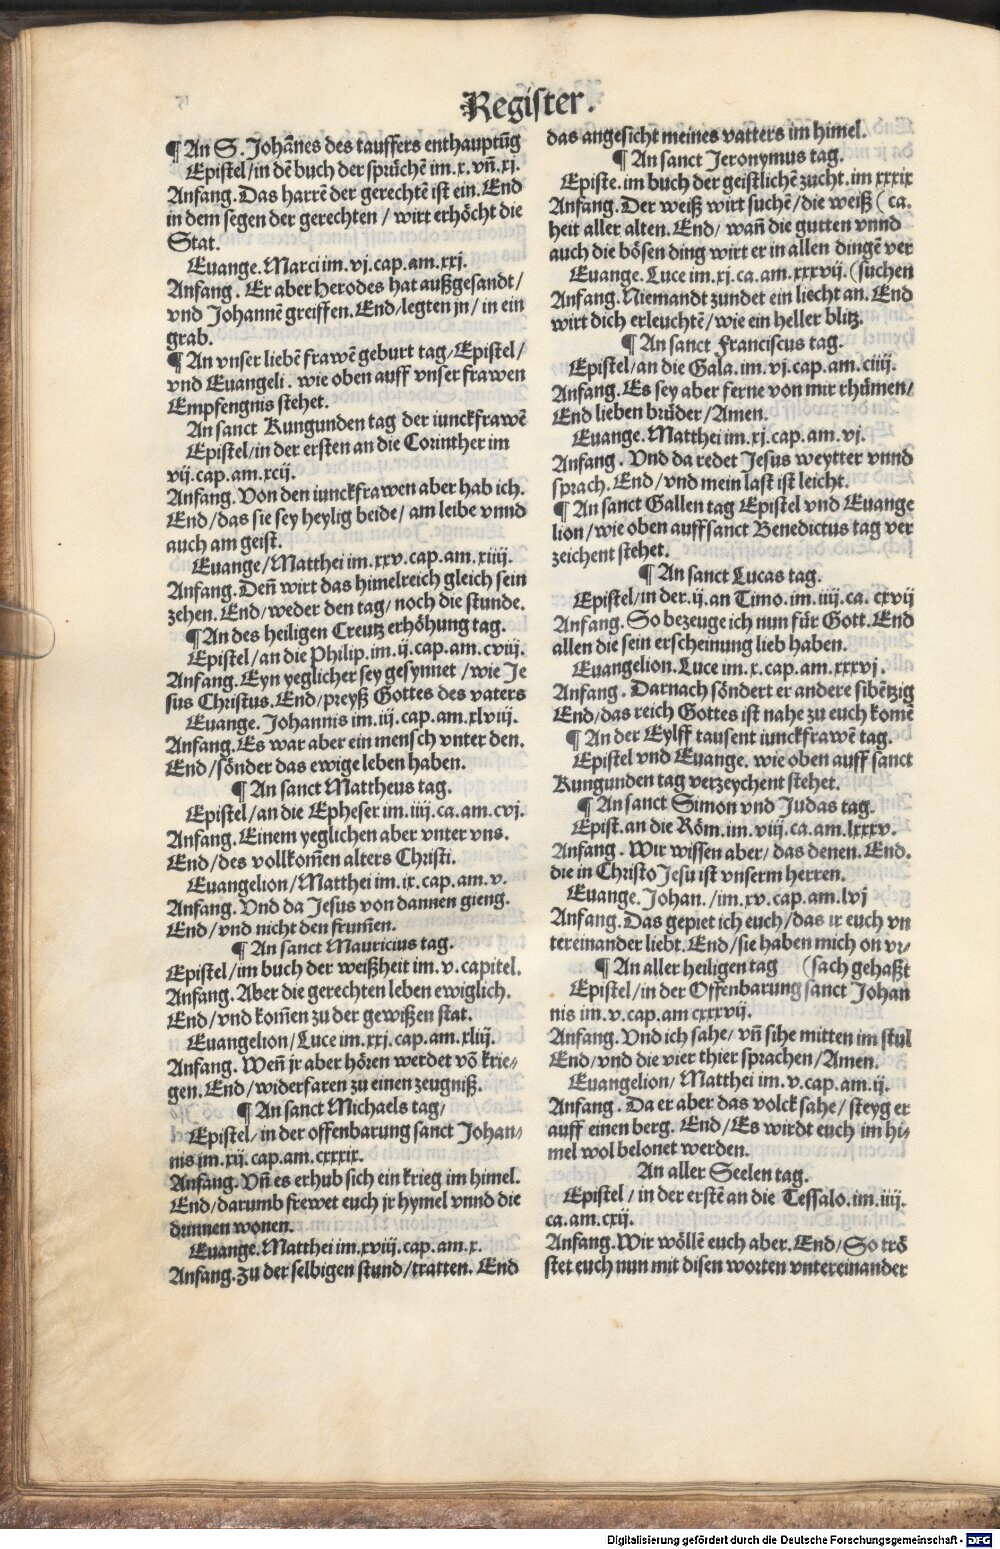 Register.
¶ An S. Johānes des tauffers enthauptūg
Epistel/in dē buch der sprüchē im.x.vn̄.xj.
Anfang. Das harrē der gerechtē ist ein. End
in dem segen der gerechten / wirt erhöcht die
Stat.
Euange. Marci im. vj. cap. am. xxj.
Anfang. Er aber Herodes hat außgesandt/
vnd Johannē greiffen. End/legten jn/ in ein
grab.
¶ An vnser liebē frawē geburt tag/Epistel/
vnd Euangeli. wie oben auff vnser frawen
Empfengnis stehet.
An sanct Kungunden tag der iunckfrawē
Epistel/in der ersten an die Corinther im
vij. cap. am. xcij.
Anfang. Von den iunckfrawen aber hab ich.
End/das sie sey heylig beide/ am leibe vnnd
auch am geist.
Euange/Matthei im. xxv. cap. am. xiiij.
Anfang. Den̄ wirt das himelreich gleich sein
zehen. End/weder den tag/noch die stunde.
¶ An des heiligen Creutz erhöhung tag.
Epistel/an die Philip. im. ij. cap. am. cviij.
Anfang. Eyn yeglicher sey gesynnet /wie Je
sus Christus. End/preyß Gottes des vaters
Euange. Johannis im. iij. cap. am. xlviij.
Anfang. Es war aber ein mensch vnter den.
End/sönder das ewige leben haben.
¶ An sanct Mattheus tag.
Epistel/an die Epheser im. iiij. ca. am. cvj.
Anfang. Einem yeglichen aber vnter vns.
End/des vollkom̄en alters Christi.
Euangelion/Matthei im. ix. cap. am. v.
Anfang. Vnd da Jesus von dannen gieng.
End/vnd nicht den frum̄en.
¶ An sanct Mauricius tag.
Epistel/im buch der weißheit im. v. capitel.
Anfang. Aber die gerechten leben ewiglich.
End/vnd kom̄en zu der gewißen stat.
Euangelion/Luce im. xxj. cap. am. xliij.
Anfang. Wen̄ jr aber hören werdet vō krie-
gen. End/widerfaren zu einen zeugniß.
¶ An sanct Michaels tag/
Epistel/in der offenbarung sanct Johan-
nis im. xij. cap. am. cxxxix.
Anfang. Vn̄ es erhub sich ein krieg im himel.
End/darumb frewet euch jr hymel vnnd die
drinnen wonen.
Euange. Matthei im. xviij. cap. am. x.
Anfang. Zu der selbigen stund/tratten. End
das angesicht meines vatters im himel.
¶ An sanct Jeronymus tag.
Episte. im buch der geistlichē zucht. im xxxix
Anfang. Der weiß wirt suchē/die weiß ( ca.
heit aller alten. End/ wan̄ die gutten vnnd
auch die bösen ding wirt er in allen dingē ver
Euange. Luce im. xj. ca. am. xxxvij. (suchen
Anfang. Niemandt zundet ein liecht an. End
wirt dich erleuchtē/wie ein heller blitz.
¶ An sanct Franciscus tag.
Epistel/an die Gala. im. vj. cap. am. ciiij.
Anfang. Es sey aber ferne von mir rhümen/
End lieben brüder/Amen.
Euange. Matthei im. xj. cap. am. vj.
Anfang. Vnd da redet Jesus weytter vnnd
sprach. End/vnd mein last ist leicht.
¶ An sanct Gallen tag Epistel vnd Euange
lion/wie oben auff sanct Benedictus tag ver
zeichent stehet.
¶ An sanct Lucas tag.
Epistel/in der. ij. an Timo. im. iiij. ca. cxvij
Anfang. So bezeuge ich nun für Gott. End
allen die sein erscheinung lieb haben.
Euangelion. Luce im. x. cap. am. xxxvj.
Anfang. Darnach söndert er andere sibētzig
End/das reich Gottes ist nahe zu euch komē
¶ An der Eylff tausent iunckfrawē tag.
Epistel vnd Euange. wie oben auff sanct
Kungunden tag verzeychent stehet.
¶ An sanct Simon vnd Judas tag.
Epist. an die Röm. im. viij. ca. am. lxxxv.
Anfang. Wir wissen aber/ das denen. End.
die in Christo Jesu ist vnserm herren.
Euange. Johan./im. xv. cap. am. lvj
Anfang. Das gepiet ich euch/das ir euch vn
tereinander liebt. End/sie haben mich on vr-
¶ An aller heiligen tag (sach gehaßt
Epistel/in der Offenbarung sanct Johan
nis im. v. cap. am cxxxvij.
Anfang. Vnd ich sahe/ vn̄ sihe mitten im stul
End/vnd die vier thier sprachen/Amen.
Euangelion/ Matthei im. v. cap. am. ij.
Anfang. Da er aber das volck sahe/ steyg er
auff einen berg. End/Es wirdt euch im hi-
mel wol belonet werden.
An aller Seelen tag.
Epistel / in der erstē an die Tessalo. im. iiij.
ca. am. cxij.
Anfang. Wir wöllē euch aber. End/So trö
stet euch nun mit disen worten vntereinander
Digitalisierung gefördert durch die Deutsche Forschungsgemeinschaft - DFG